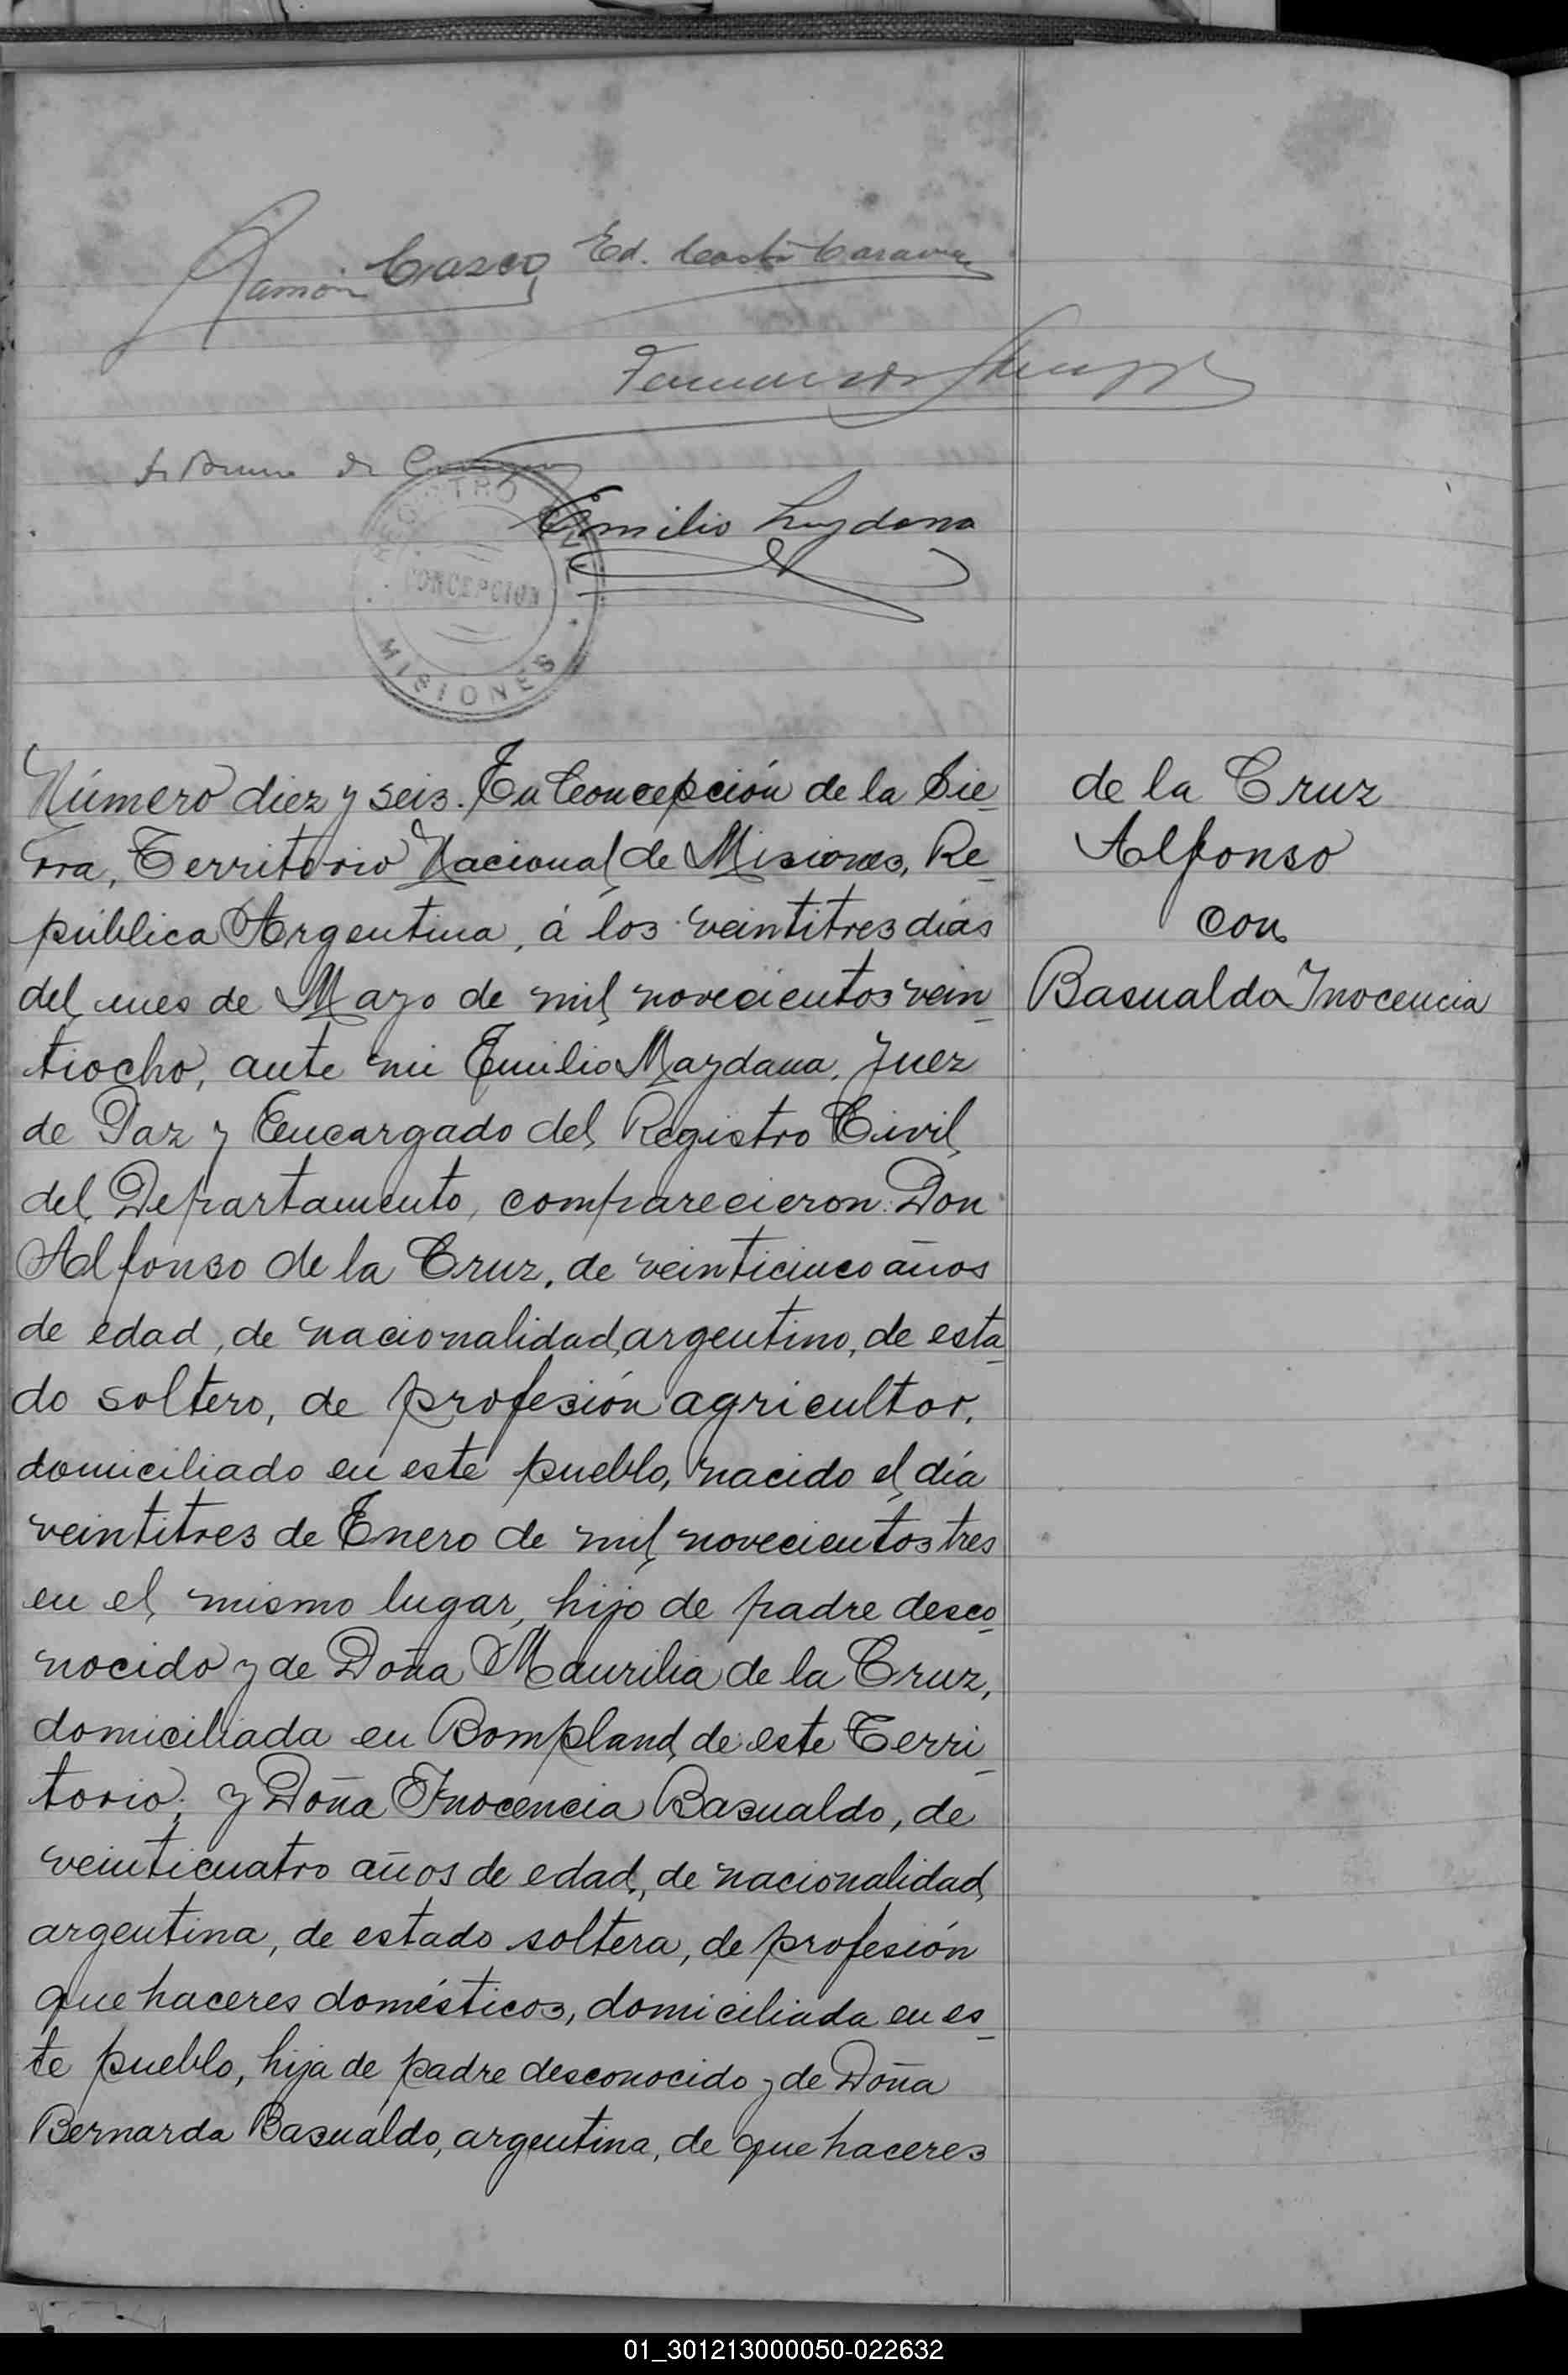 Ramón Casco
Ed.
Emilio
REGISTRO CIVIL
CONCEPCION
MISIONES
Número diez y seis. En Concepción de la Sie-
rra, Territorio Nacional de Misiones, Re-
pública Argentina, á los veintitres días
del mes de Mayo de mil novecientos vein-
tiocho, ante mi Emilio Maydana, Juez
de Paz y Encargado del Registro Civil
del Departamento, comparecieron: Don
Alfonso de la Cruz, de veinticinco años
de edad, de nacionalidad argentino, de esta-
do soltero, de profesión agricultor,
domiciliado en este pueblo, nacido el día
veintitres de Enero de mil novecientos tres
en el mismo lugar, hijo de padre desco-
nocido y de Doña Maurilia de la Cruz,
domiciliada en Bompland, de este Terri-
torio; y Doña Inocencia Basualdo, de
veinticuatro años de edad, de nacionalidad
argentina, de estado soltera, de profesión
que haceres domésticos, domiciliada en es-
te pueblo, hija de padre desconocido y de Doña
Bernarda Basualdo, argentina, de que haceres
de la Cruz
Alfonso
con
Basualdo Inocencia
01_301213000050-022632